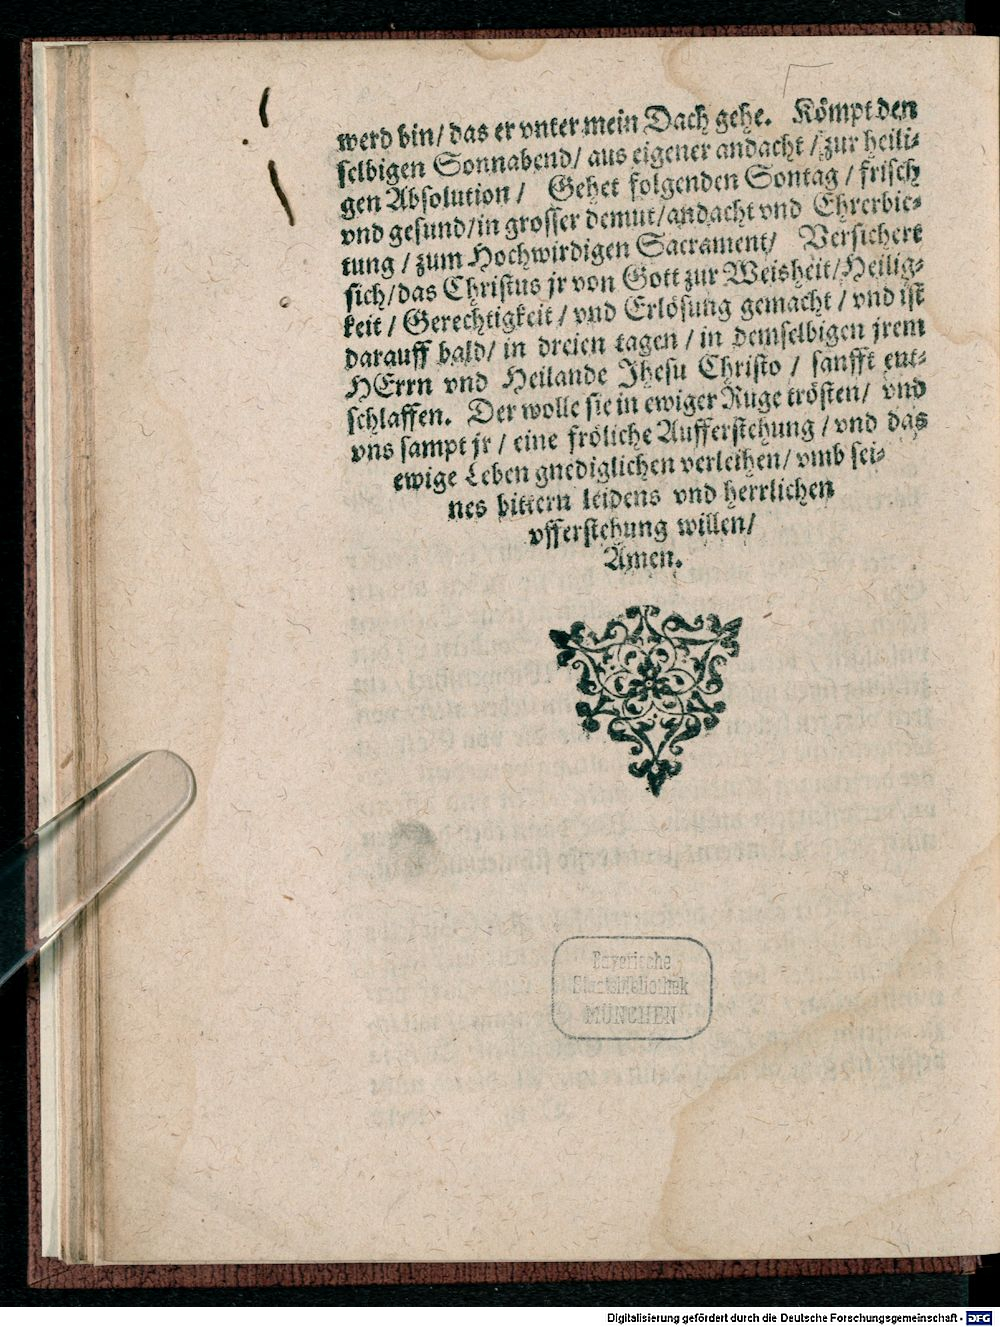 werd bin/ das er vnter mein Dach gehe. Kömpt den
selbigen Sonnabend/ aus eigener andacht / zur heili-
gen Absolution / Gehet folgenden Sontag / frisch
vnd gesund/ in grosser demut/ andacht vnd Ehrerbie-
tung / zum Hochwirdigen Sacrament/ Versichert
sich/ das Christus jr von Gott zur Weisheit/ Heilig-
keit / Gerechtigkeit / vnd Erlösung gemacht / vnd ist
darauff bald/ in dreien tagen / in demselbigen jrem
HErrn vnd Heilande Jhesu Christo / sanfft ent-
schlaffen. Der wolle sie in ewiger Ruge trösten/ vnd
vns sampt jr / eine fröliche Aufferstehung / vnd das
ewige Leben gnediglichen verleihen/ vmb sei-
nes bittern leidens vnd herrlichen
vfferstehung willen/
Amen.
Bayerische
Staatsbibliothek
MÜNCHEN
Digitalisierung gefördert durch die Deutsche Forschungsgemeinschaft - DFG